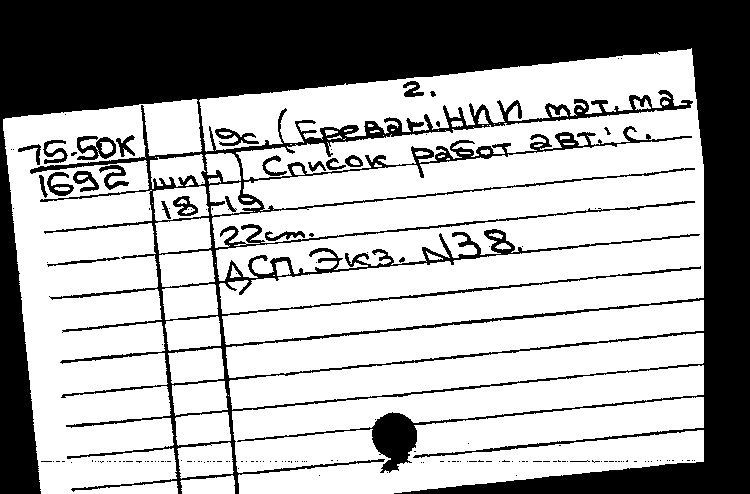 2.
75-50к 19с. (Ереван. НИИ мат. ма-
1692 шин). Список работ авт.: с.
18-19.
22 см.
ДСП. Экз. N38.